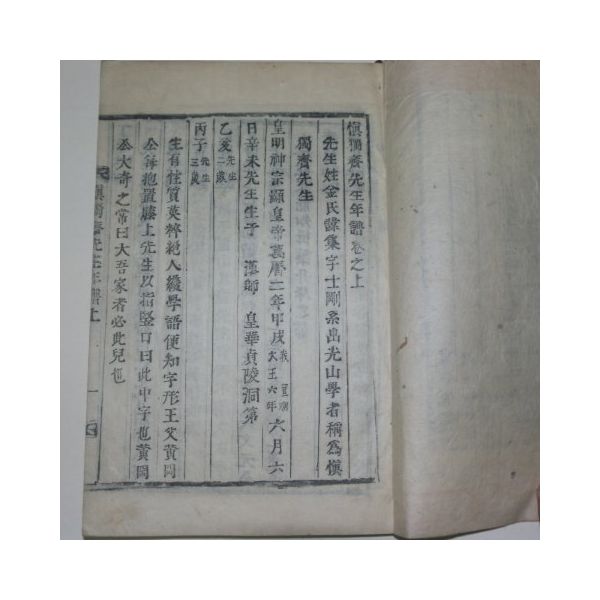 愼獨齋先生年譜卷之上
先生姓金氏諱集字士剛系出光山學者稱爲愼
獨齋先生
皇明神宗顯皇帝萬曆二年甲戌我宣廟大王六年六月六
日辛未先生生于漢師皇華貞陵洞第
乙亥先生二歲
丙子先生三歲
生有性質英粹絶人纔學語便知字形王父黃岡
公每抱置膝上先生以指竪口曰此中字也黃岡
公大奇之常曰大吾家者必此兒也
愼獨齋先生年譜上
一